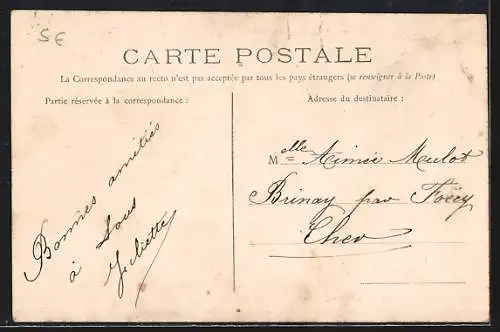 5€
CARTE POSTALE
La Correspondance au recto n'est pas acceptée par tous les pays étrangers (se renseigner à la Poste)
Partie réservée à la correspondance :
Adresse du destinataire :
Bonnes amitiés
à tous
Juliette
Melle Aimée Mulot
Brinay par Foëcy
Cher